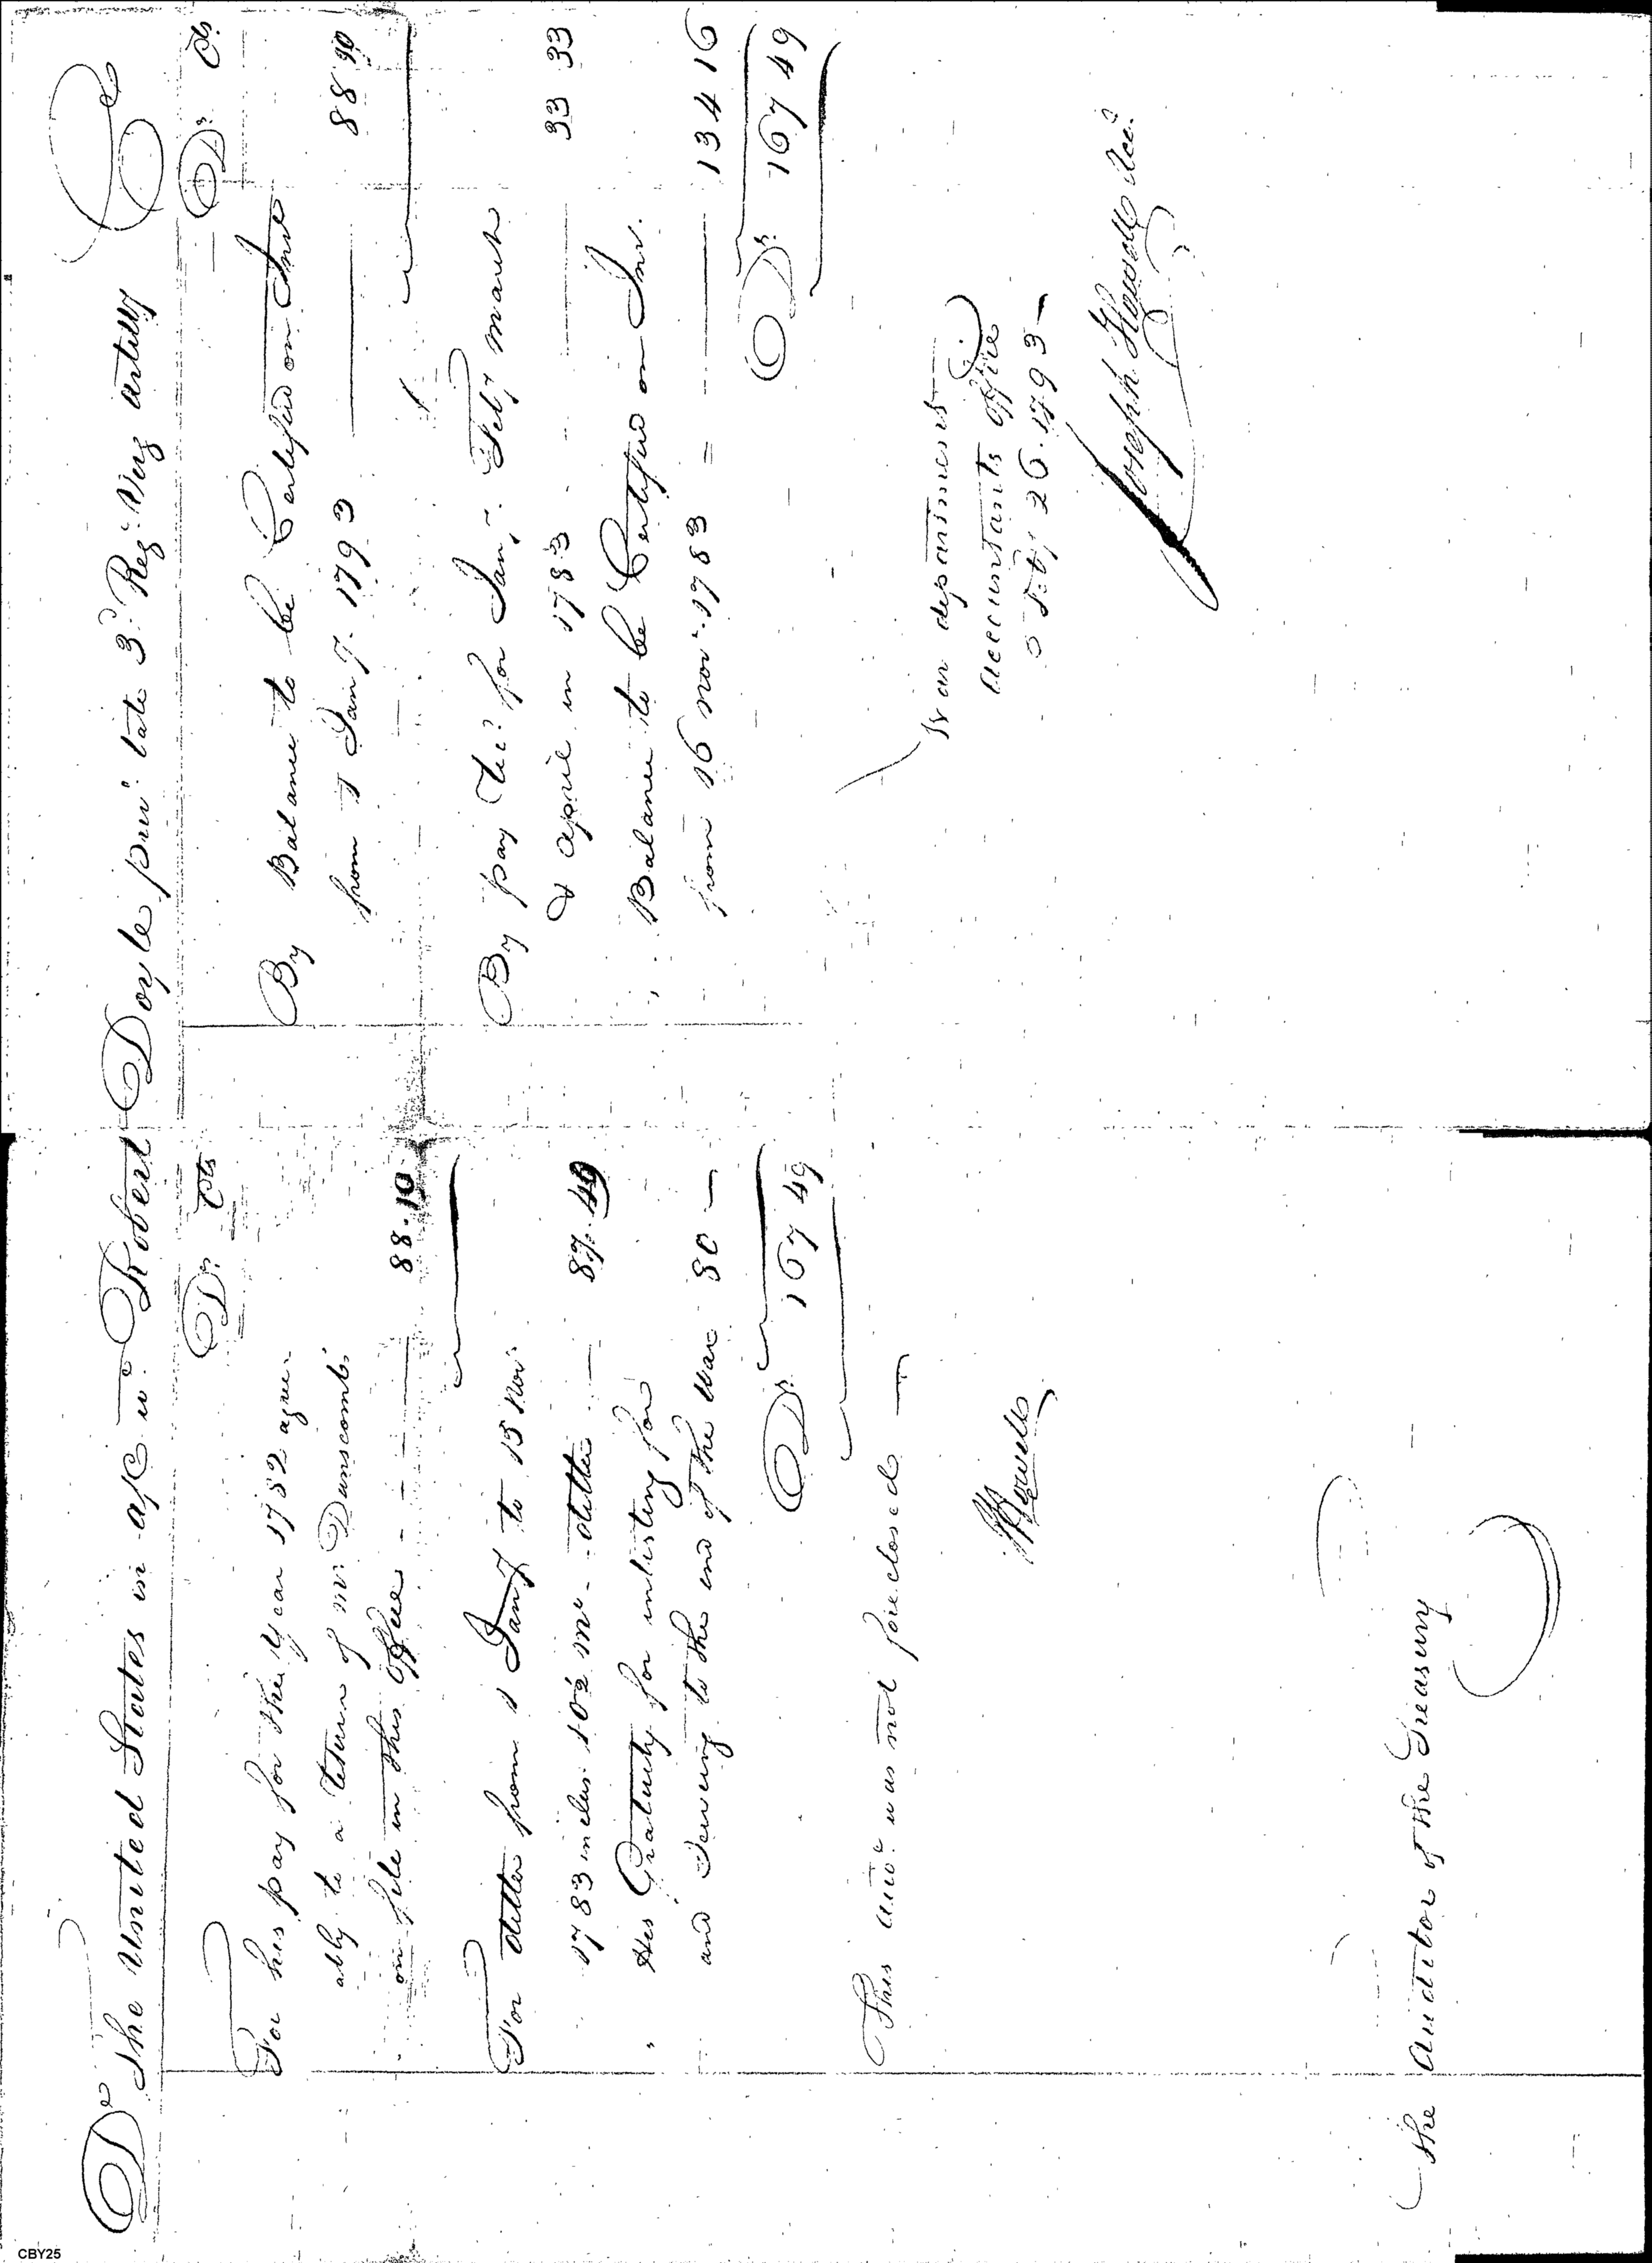 Dr The United States in a/c wt. Robert Doyle priv. late 3d. Reg. Virg artillery Cr
Dr. Cts
For his pay for the year 1782 agree-
ably to a return of Mr. Dunscombs
on file in this Office - - - 88.10
For ditto from 1 Jany to 15 Nov.
1783 inclus. 10½ Mo. - ditto — 87.49
" His Gratuity for inlisting for
and serving to the end of the war 80 —
Dr. 167 49
This acco.t was not foreclosed —
JHowell
The Auditor of the Treasury
Dr. Cts.
By Balance to be Certified on Int
from 1 Jany. 1793 —— 88 10
By pay recd. for Jany. Feby march
& april in 1783 - - 33 33
" Balance to be Certified on Int.
from 16 nov.r 1783 = —— 134 16
Dr. 167 49
War department
accountants office
Feby 26. 1793 —
Joseph Howell Acct.
CBY25